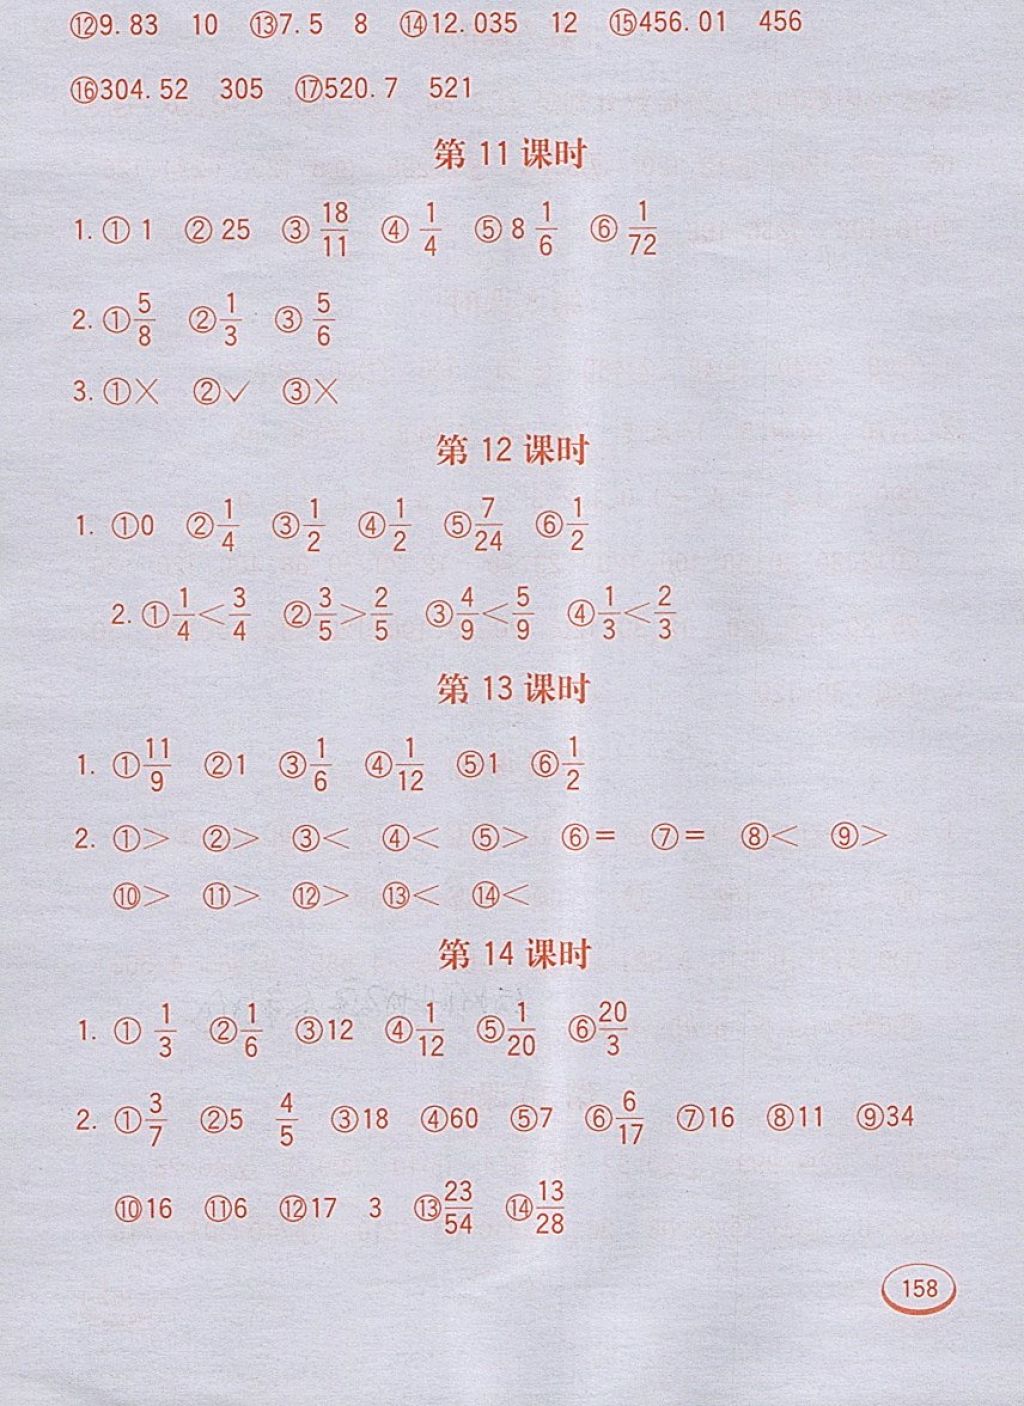 ⑫9.83 10 ⑬7.5 8 ⑭12.035 12 ⑮456.01 456
⑯304.52 305 ⑰520.7 521
第 11 课时
1. ①1 ②25 ③18/11 ④1/4 ⑤8 1/6 ⑥1/72
2. ①5/8 ②1/3 ③5/6
3. ①× ②✓ ③×
第 12 课时
1. ①0 ②1/4 ③1/2 ④1/2 ⑤7/24 ⑥1/2
2. ①1/4<3/4 ②3/5>2/5 ③4/9<5/9 ④1/3<2/3
第 13 课时
1. ①11/9 ②1 ③1/6 ④1/12 ⑤1 ⑥1/2
2. ①> ②> ③< ④< ⑤> ⑥= ⑦= ⑧< ⑨>
⑩> ⑪> ⑫> ⑬< ⑭<
第 14 课时
1. ①1/3 ②1/6 ③12 ④1/12 ⑤1/20 ⑥20/3
2. ①3/7 ②5 4/5 ③18 ④60 ⑤7 ⑥6/17 ⑦16 ⑧11 ⑨34
⑩16 ⑪6 ⑫17 3 ⑬23/54 ⑭13/28
158